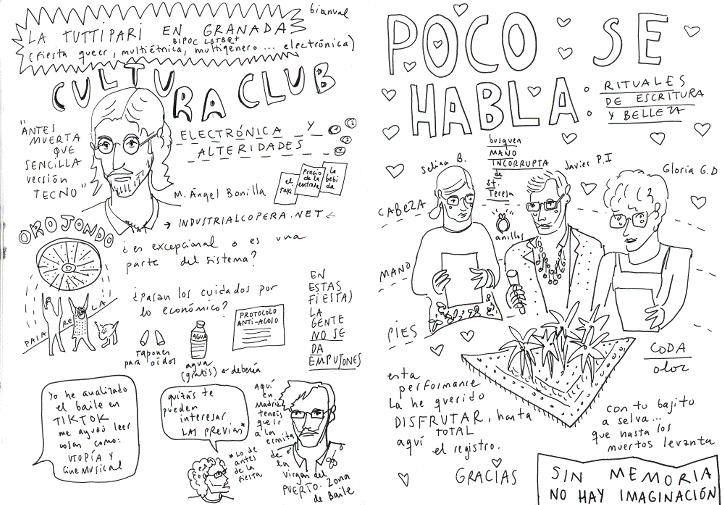 bianual
LA TUTTIPARI EN GRANADA
BIPOC LGTBQ+
(fiesta queer, multiétnica, multigénero... electrónica)
CULTURA CLUB
"ANTES
MUERTA
QUE
SENCILLA
versión
TECNO"
ELECTRÓNICA Y
ALTERIDADES
el
Precio
de la
entrada
La
bebida
M. Ángel Bonilla
→ INDUSTRIALCOPERA.NET ←
OROJONDO
PARA BAILAR
¿es excepcional o es una
parte del sistema?
¿Pasan los cuidados por
lo económico?
tapones
para oídos
AGUA
agua
(gratis) ← debería
PROTOCOLO
ANTI-ACOSO
EN
ESTAS
FIESTAS
LA
GENTE
NO SE
DA
EMPUJONES
Yo he analizado
el baile en
TIKTOK
me ayudó leer
cosas como:
UTOPÍA Y
CINE MUSICAL
quizás te
pueden
interesar
LAS PREVIAS*
*Lo de
antes
de la
fiesta
aquí
en
Madrid
tenéis
que ir
a la
ermita
de
la
virgen del
PUERTO. Zona
de Baile
POCO SE
HABLA:
RITUALES
DE ESCRITURA
Y BELLEZA
busquen
MANO
INCORRUPTA
de
St.
Teresa
anillos
Selina B.
Javier P.I
Gloria G.D
CABEZA
MANO
PIES
esta
performance
la he querido
DISFRUTAR, hasta
TOTAL
aquí
el registro.
GRACIAS
CODA
olor
con tu bajito
a selva...
que hasta los
muertos levanta
SIN MEMORIA
NO HAY IMAGINACIÓN